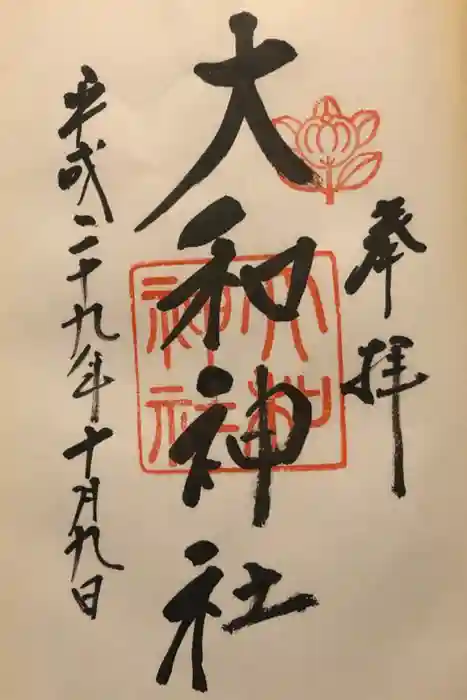 奉拝
大和神社
大和
神社
平成二十九年十月九日